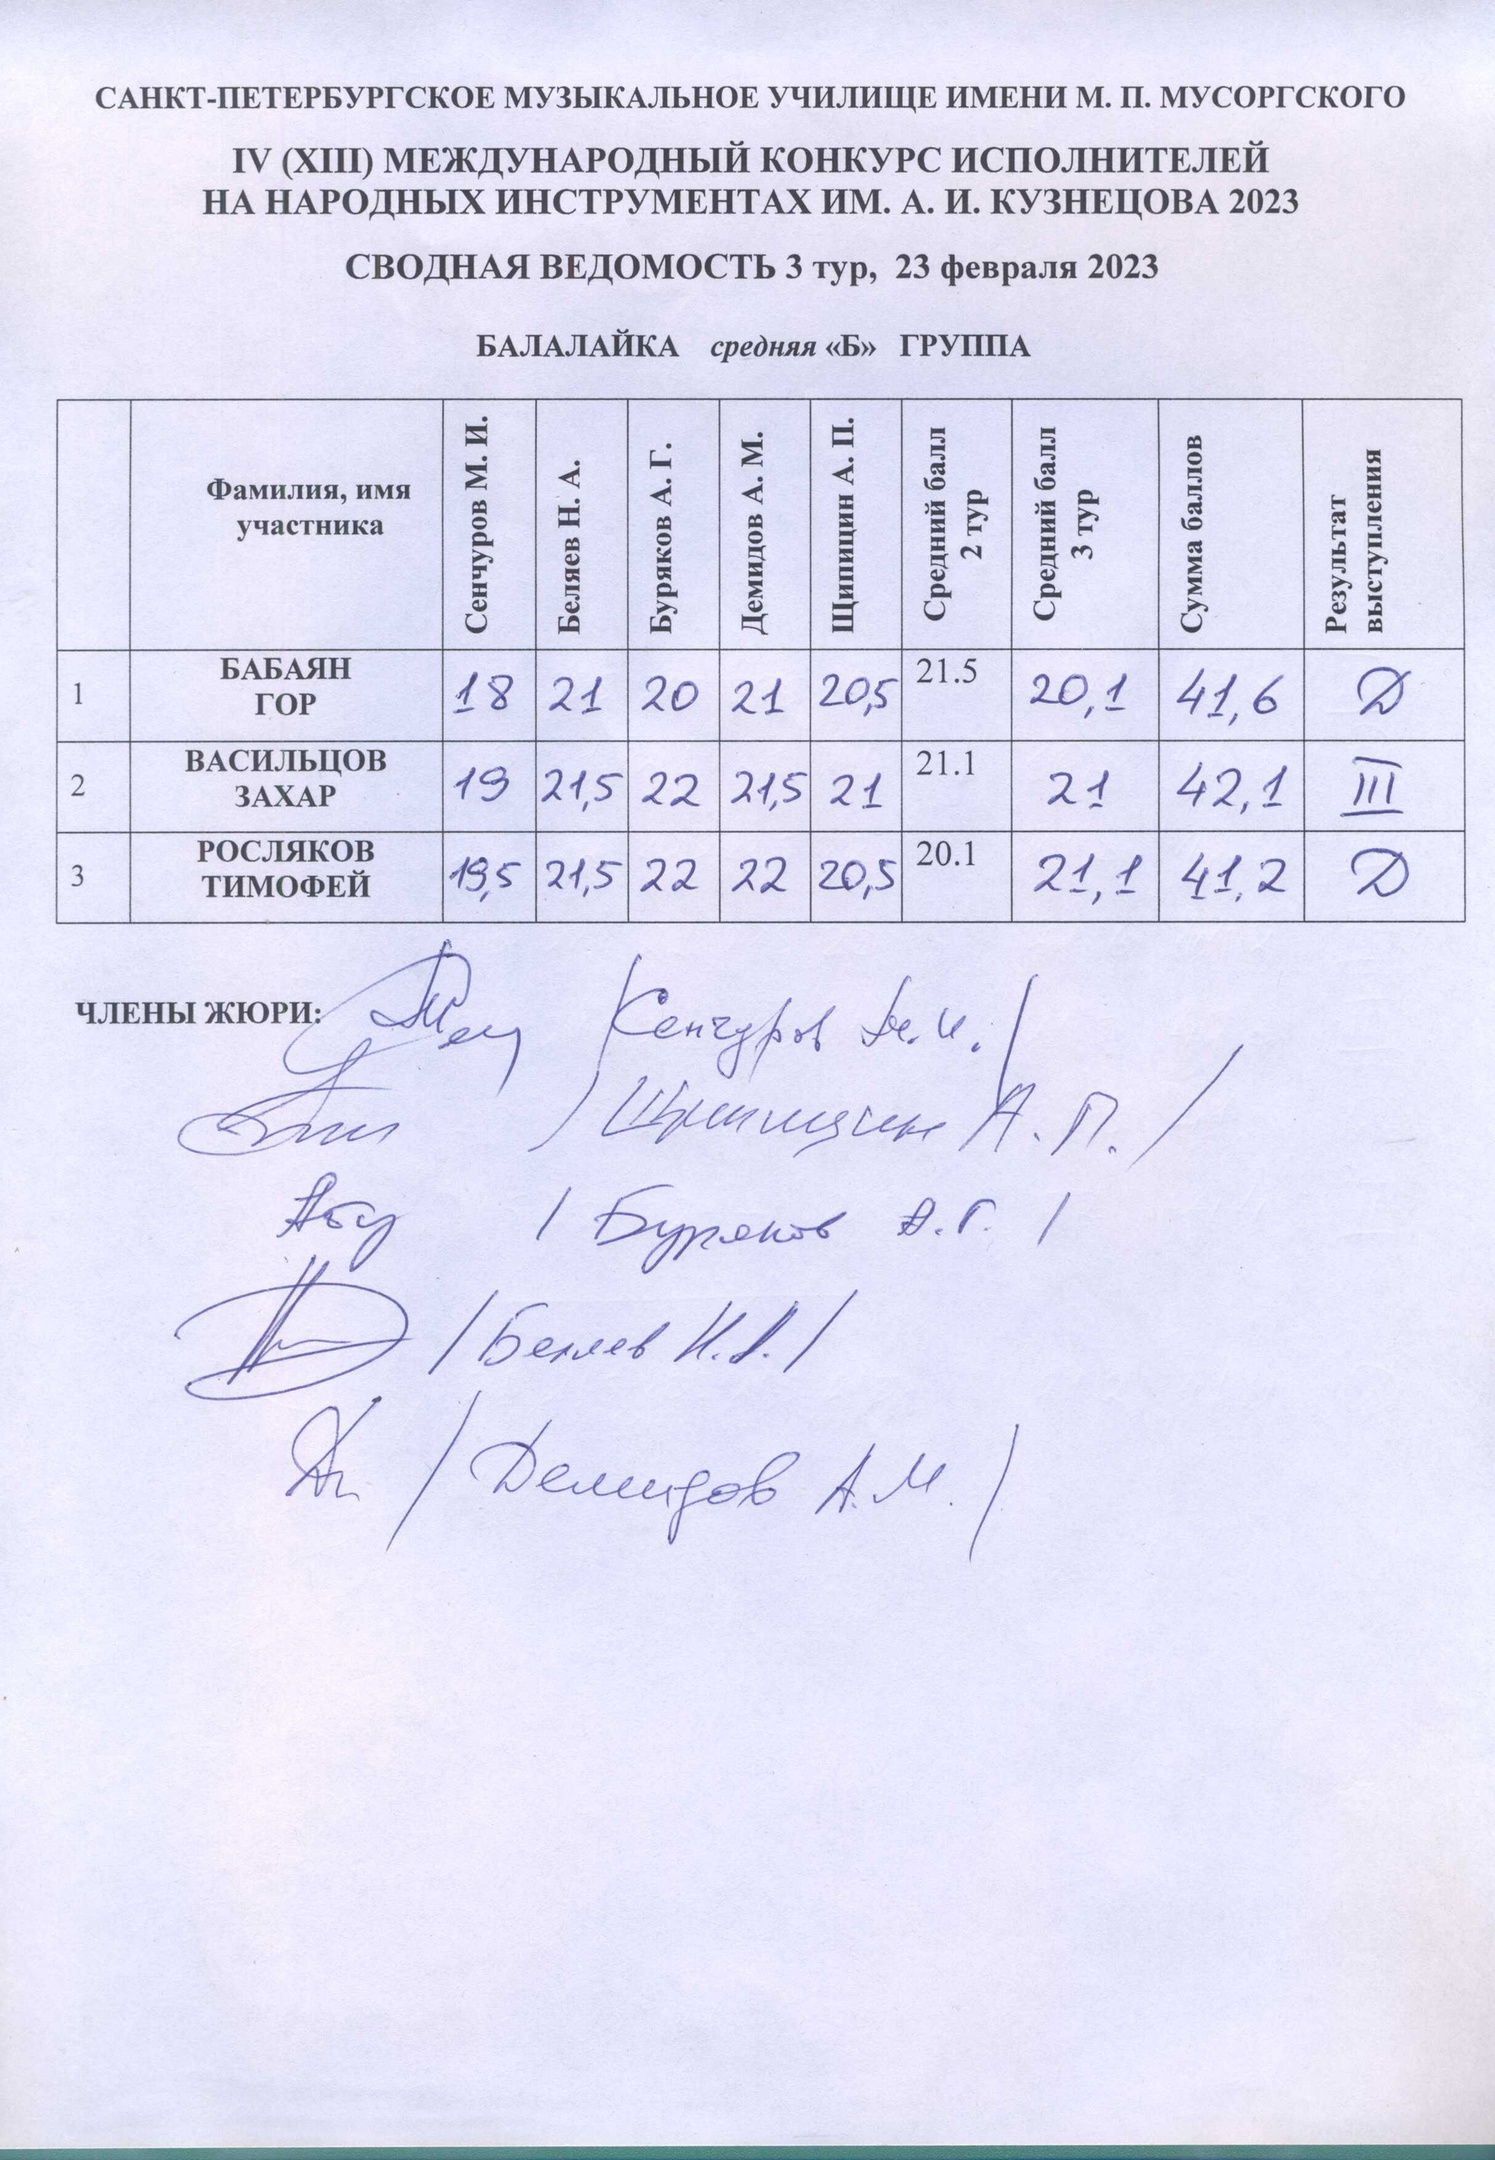 САНКТ-ПЕТЕРБУРГСКОЕ МУЗЫКАЛЬНОЕ УЧИЛИЩЕ ИМЕНИ М. П. МУСОРГСКОГО
IV (XIII) МЕЖДУНАРОДНЫЙ КОНКУРС ИСПОЛНИТЕЛЕЙ
НА НАРОДНЫХ ИНСТРУМЕНТАХ ИМ. А. И. КУЗНЕЦОВА 2023
СВОДНАЯ ВЕДОМОСТЬ 3 тур, 23 февраля 2023
БАЛАЛАЙКА средняя «Б» ГРУППА
Фамилия, имя
участника
Сенчуров М. И.
Беляев Н. А.
Буряков А. Г.
Демидов А. М.
Щипицин А. П.
Средний балл
2 тур
Средний балл
3 тур
Сумма баллов
Результат
выступления
1 БАБАЯН ГОР 18 21 20 21 20,5 21.5 20,1 41,6 Д
2 ВАСИЛЬЦОВ ЗАХАР 19 21,5 22 21,5 21 21.1 21 42,1 III
3 РОСЛЯКОВ ТИМОФЕЙ 19,5 21,5 22 22 20,5 20.1 21,1 41,2 Д
ЧЛЕНЫ ЖЮРИ: /Сенчуров М.И./
/Щипицин А. П./
/Буряков А.Г./
/Беляев Н.А./
/Демидов А.М./